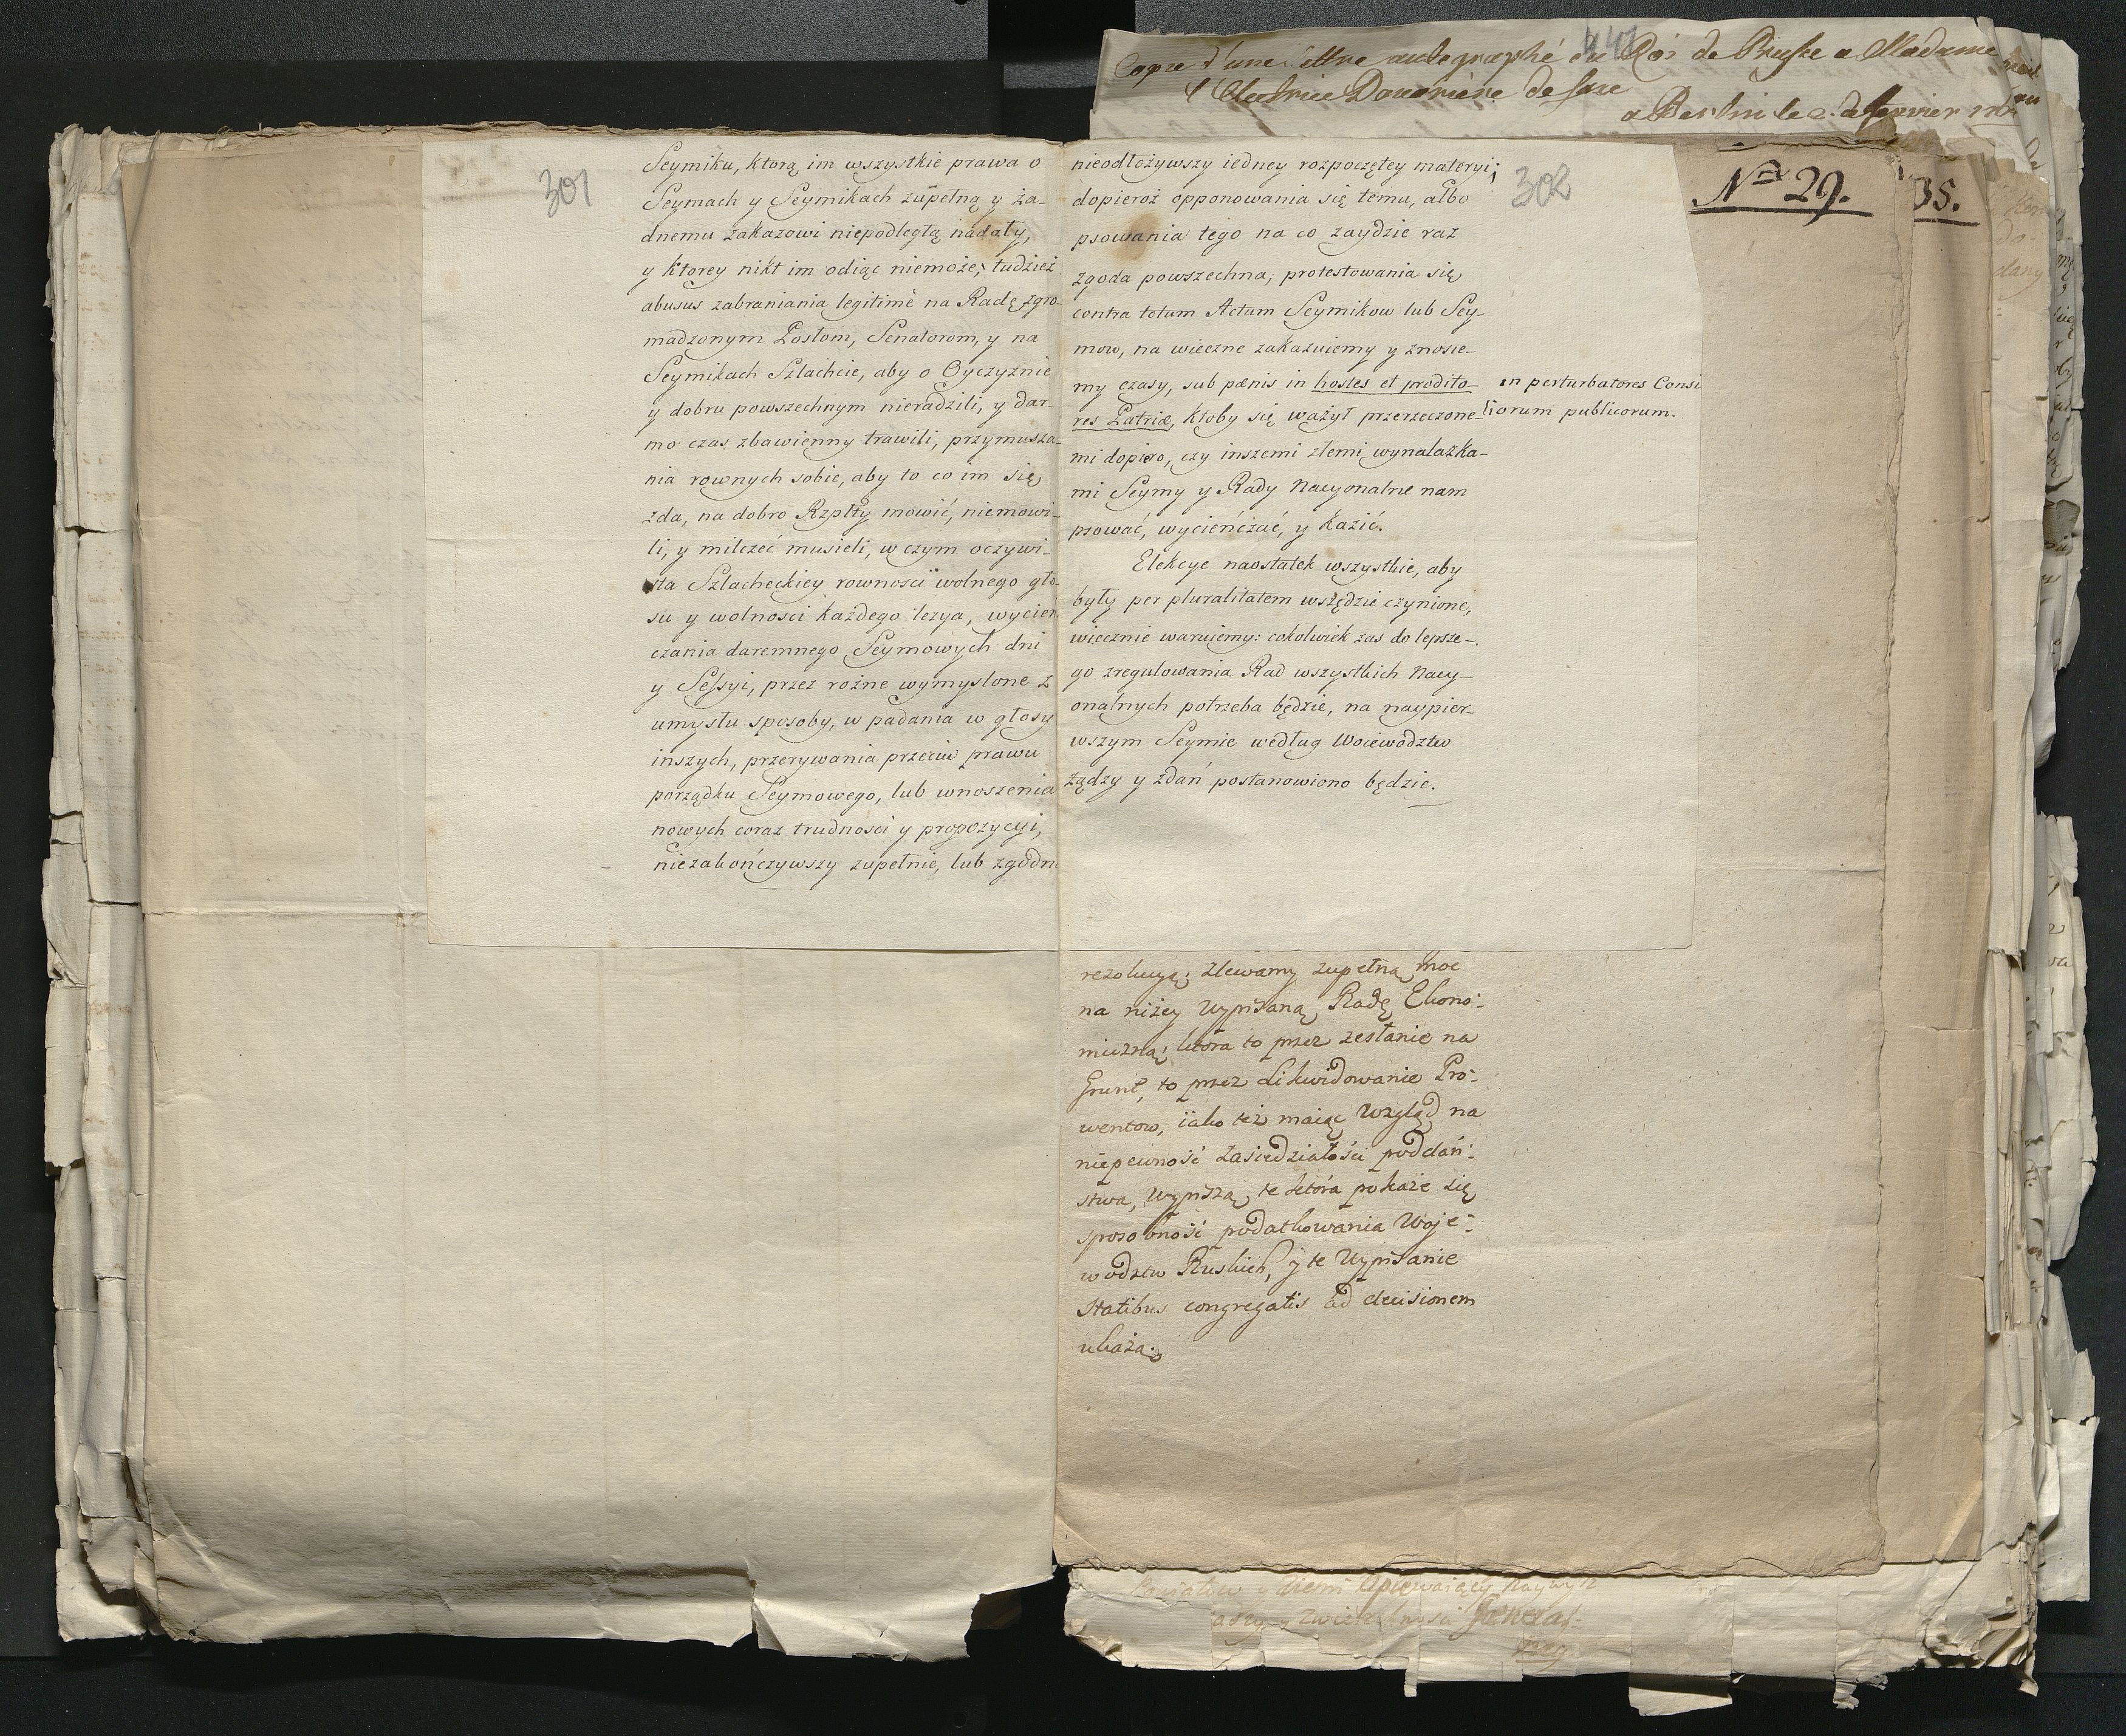 301
Seymiku, ktorą im wszystkie prawa o
Seymach y Seymikach zupełną y ża-
dnemu zakazowi niepodległą nadały,
y ktorey nikt im odiąc niemoże; tudzież
abusus zabraniania legitimè na Radę zgro-
madzonym Posłom, Senatorom, y na
Seymikach Szlachcie, aby o Oyczyznie
y dobru powszechnym nieradzili, y dar-
mo czas zbawienny trawili, przymusza-
nia rownych sobie, aby to co im się
zda, na dobro Rzpłty mowić, niemowi-
li, y milczeć musieli, w czym oczywi-
sta Szlacheckiey rownosci wolnego gło-
su y wolnosci każdego lezya, wycień
czania daremnego Seymowych dni
y Sessyi, przez rożne wymyslone z
umysłu sposoby, w padania w głosy
inszych, przerywania przeciw prawu
porządku Seymowego, lub wnoszenia
nowych coraz trudnosci y propozycyi,
niezakończywszy zupełnie, lub zgodn
302
nieodłożywszy iedney rozpoczętey materyi;
dopieroż opponowania się temu, albo
psowania tego na co zaydzie raz
zgoda powszechna, protestowania się
contra totum Actum Seymikow lub Sey-
mow, na wieczne zakazuiemy y znosie-
my czasy, sub pœnis in hostes et prodito-
res Patriæ, ktoby się ważył przerzeczone-
mi dopiro, czy inszemi złemi wynalazka-
mi Seymy y Rady Nacyonalne nam
psować, wycieńćzać, y kazić.
Elekcye naostatek wszystkie, aby
były per pluralitatem wszędzie czynione,
wiecznie warujemy: cokolwiek zas do lepsze-
go zregulowania Rad wszystkich Nacy-
onalnych potrzeba będzie, na naypier-
wszym Seymie według Woiewodztw
żądzy y zdań postanowiono będzie.
in perturbatores Consi
liorum publicorum.
rezolucyą; zlewamy zupełną moc
na niżey wypisaną Radę Ekono-
miczną; ktora to przez zesłanie na
Grunt, to przez Likwidowanie Pro-
wentow, iako też maiąc wzgląd na
niepewność zasiedziałości poddań-
stwa, wypiszą, te ktora pokaże się
sposobność podatkowania Woje-
wodztw Ruskich, y te wypisanie
Statibus congregatis ad decisionem
ukażą.
441
Copie d'une lettre autographé du Roi de Prusse a Madame
l'Electrice Douariere de Saxe
a Berlin le
Nro 29.
35.